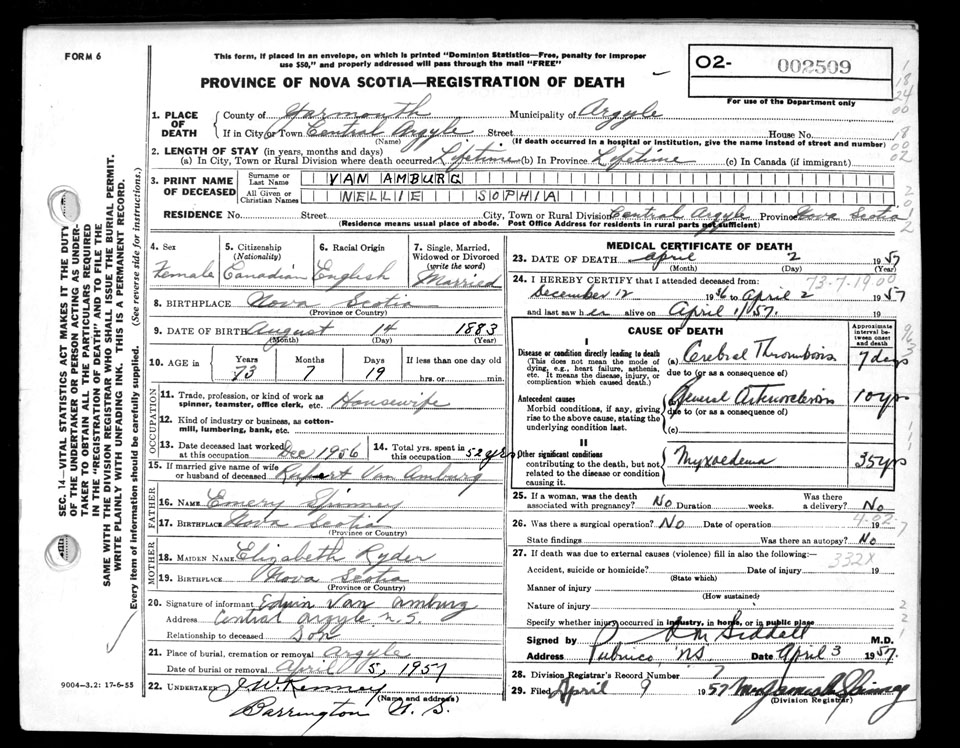 FORM 6
This form, if placed in an envelope, on which is printed "Dominion Statistics—Free, penalty for improper
use $50," and properly addressed will pass through the mail "FREE"
PROVINCE OF NOVA SCOTIA—REGISTRATION OF DEATH
O2- 002509
For use of the Department only
1. PLACE OF DEATH
County of Yarmouth Municipality of Argyle
If in City or Town Central Argyle Street House No.
(Name) (If death occurred in a hospital or institution, give the name instead of street and number)
2. LENGTH OF STAY (in years, months and days)
(a) In City, Town or Rural Division where death occurred Lifetime (b) In Province Lifetime (c) In Canada (if immigrant)
3. PRINT NAME OF DECEASED
Surname or Last Name VAN AMBURG
All Given or Christian Names NELLIE SOPHIA
RESIDENCE No. Street City, Town or Rural Division Central Argyle Province Nova Scotia
(Residence means usual place of abode. Post Office Address for residents in rural parts not sufficient)
4. Sex Female
5. Citizenship (Nationality) Canadian
6. Racial Origin English
7. Single, Married, Widowed or Divorced (write the word) Married
8. BIRTHPLACE Nova Scotia
(Province or County)
9. DATE OF BIRTH August 14 1883
(Month) (Day) (Year)
10. AGE in Years Months Days If less than one day old
73 7 19 hrs. or min.
OCCUPATION
11. Trade, profession, or kind of work as
spinner, teamster, office clerk, etc. Housewife
12. Kind of industry or business, as cotton-
mill, lumbering, bank, etc.
13. Date deceased last worked at this occupation Dec 1956
14. Total yrs. spent in this occupation 52 yrs
15. If married give name of wife
or husband of deceased Rupert Van Amburg
FATHER
16. NAME Emery Spinney
17. BIRTHPLACE Nova Scotia
(Province or Country)
MOTHER
18. MAIDEN NAME Elizabeth Ryder
19. BIRTHPLACE Nova Scotia
(Province or Country)
20. Signature of informant Edwin Van Amburg
Address Central Argyle N.S.
Relationship to deceased Son
21. Place of burial, cremation or removal Argyle
Date of burial or removal April 5, 1957
22. UNDERTAKER J W Kenney
(Name and address)
Barrington N.S.
9004—3.2: 17-6-55
MEDICAL CERTIFICATE OF DEATH
23. DATE OF DEATH April 2 1957
(Month) (Day) (Year)
24. I HEREBY CERTIFY that I attended deceased from:
73-7-19.00
December 12 1956 to April 2 1957
and last saw her alive on April 1/57.
CAUSE OF DEATH
Approximate interval between onset and death
I
Disease or condition directly leading to death (a) Cerebral Thrombosis 7 days
(This does not mean the mode of
dying, e.g., heart failure, asthenia,
etc. It means the disease, injury, or
complication which caused death.)
due to (or as a consequence of)
Antecedent causes General Arteriosclerosis 10 yrs
Morbid conditions, if any, giving
rise to the above cause, stating the
underlying condition last.
due to (or as a consequence of)
(c)
II
Other significant conditions
contributing to the death, but not
related to the disease or condition
causing it.
Myxoedema 35 yrs
25. If a woman, was the death
associated with pregnancy? No Duration weeks. Was there a delivery? No
26. Was there a surgical operation? No Date of operation 19
State findings Was there an autopsy? No
27. If death was due to external causes (violence) fill in also the following:—
332X
Accident, suicide or homicide? Date of injury 19
(State which)
Manner of injury
(How sustained)
Nature of injury
Specify whether injury occurred in industry, in home, or in public place
Signed by Siddall M.D.
Address Pubnico, N.S. Date April 3 1957.
28. Division Registrar's Record Number 7
29. Filed April 9 1957 Spinney
(Division Registrar)
SEC. 14—VITAL STATISTICS ACT MAKES IT THE DUTY
OF THE UNDERTAKER OR PERSON ACTING AS UNDER-
TAKER TO OBTAIN ALL THE PARTICULARS REQUIRED
IN THE "REGISTRATION OF DEATH" AND TO FILE THE
SAME WITH THE DIVISION REGISTRAR WHO SHALL ISSUE THE BURIAL PERMIT.
WRITE PLAINLY WITH UNFADING INK. THIS IS A PERMANENT RECORD.
Every item of information should be carefully supplied. (See reverse side for instructions.)